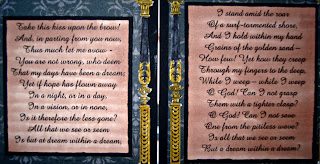 Take this kiss upon the brow!
And, in parting from you now,
Thus much let me avow -
You are not wrong, who deem
That my days have been a dream;
Yet if hope has flown away
In a night, or in a day,
In a vision, or in none,
Is it therefore the less gone?
All that we see or seem
Is but a dream within a dream.
I stand amid the roar
Of a surf-tormented shore,
And I hold within my hand
Grains of the golden sand -
How few! Yet how they creep
Through my fingers to the deep,
While I weep - while I weep
O God! Can I not grasp
Them with a tighter clasp?
O God! Can I not save
One from the pitiless wave?
Is all that we see or seem
But a dream within a dream?